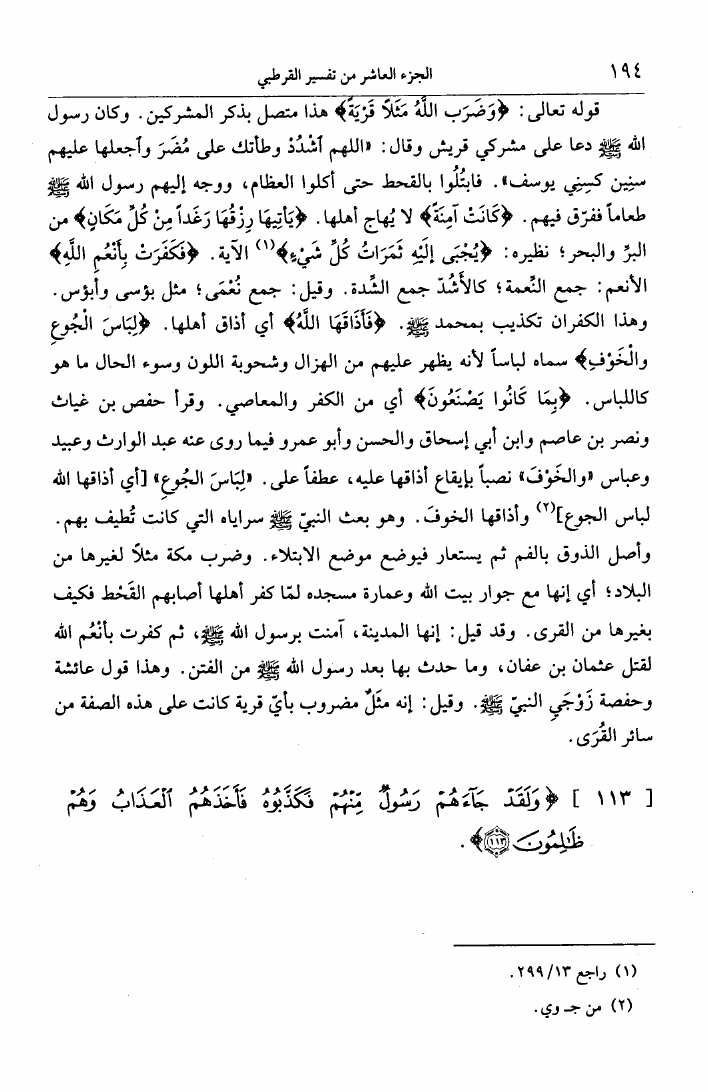 ١٩٤
الجزء العاشر من تفسير القرطبي
قوله تعالى: ﴿وَضَرَب اللَّهُ مَثَلاً قَرْيَةً﴾ هذا متصل بذكر المشركين. وكان رسول
الله ﷺ دعا على مشركي قريش وقال: «اللهم ٱشْدُدْ وطأتك على مُضَرَ وٱجعلها عليهم
سنِين كسِنِي يوسف». فابتُلُوا بالقحط حتى أكلوا العظام، ووجه إليهم رسول الله ﷺ
طعاماً ففرّق فيهم. ﴿كَانَتْ آمِنَةً﴾ لا يُهاج أهلها. ﴿يَأتِيهَا رِزْقُهَا رَغَداً مِنْ كُلِّ مَكَانٍ﴾ من
البرِّ والبحر؛ نظيره: ﴿يُجْبَى إلَيْهِ ثمَرَاتُ كُلِّ شَيْءٍ﴾(١) الآية. ﴿فَكَفَرَتْ بِأَنْعُمِ اللَّهِ﴾
الأنعم: جمع النِّعمة؛ كالأشُدّ جمع الشِّدة. وقيل: جمع نُعْمَى؛ مثل بؤسى وأبؤس.
وهذا الكفران تكذيب بمحمد ﷺ. ﴿فَأَذَاقَهَا اللَّهُ﴾ أي أذاق أهلها. ﴿لِبَاسَ الْجُوعِ
والْخَوْفِ﴾ سماه لباساً لأنه يظهر عليهم من الهزال وشحوبة اللون وسوء الحال ما هو
كاللباس. ﴿بِمَا كَانُوا يَصْنَعُونَ﴾ أي من الكفر والمعاصي. وقرأ حفص بن غياث
ونصر بن عاصم وابن أبي إسحاق والحسن وأبو عمرو فيما روى عنه عبد الوارث وعبيد
وعباس «والخَوْفَ» نصباً بإيقاع أذاقها عليه، عطفاً على. «لِبَاسَ الجُوعِ» [أي أذاقها الله
لباس الجوع](٢) وأذاقها الخوفَ. وهو بعث النبيّ ﷺ سراياه التي كانت تُطيف بهم.
وأصل الذوق بالفم ثم يستعار فيوضع موضع الابتلاء. وضرب مكة مثلاً لغيرها من
البلاد؛ أي إنها مع جوار بيت الله وعمارة مسجده لمّا كفر أهلها أصابهم القَحْط فكيف
بغيرها من القرى. وقد قيل: إنها المدينة، آمنت برسول الله ﷺ، ثم كفرت بأنْعُم الله
لقتل عثمان بن عفان، وما حدث بها بعد رسول الله ﷺ من الفتن. وهذا قول عائشة
وحفصة زَوْجَيِ النبيّ ﷺ. وقيل: إنه مثَلٌ مضروب بأيّ قرية كانت على هذه الصفة من
سائر القُرَى.
[ ١١٣ ] ﴿وَلَقَدْ جَآءَهُمْ رَسُولٌ مِّنْهُمْ فَكَذَّبُوهُ فَأَخَذَهُمُ ٱلْعَذَابُ وَهُمْ
ظَٰلِمُونَ ﴿١١٣﴾﴾.
(١) راجع ٢٩٩/١٣.
(٢) من جـ وي.